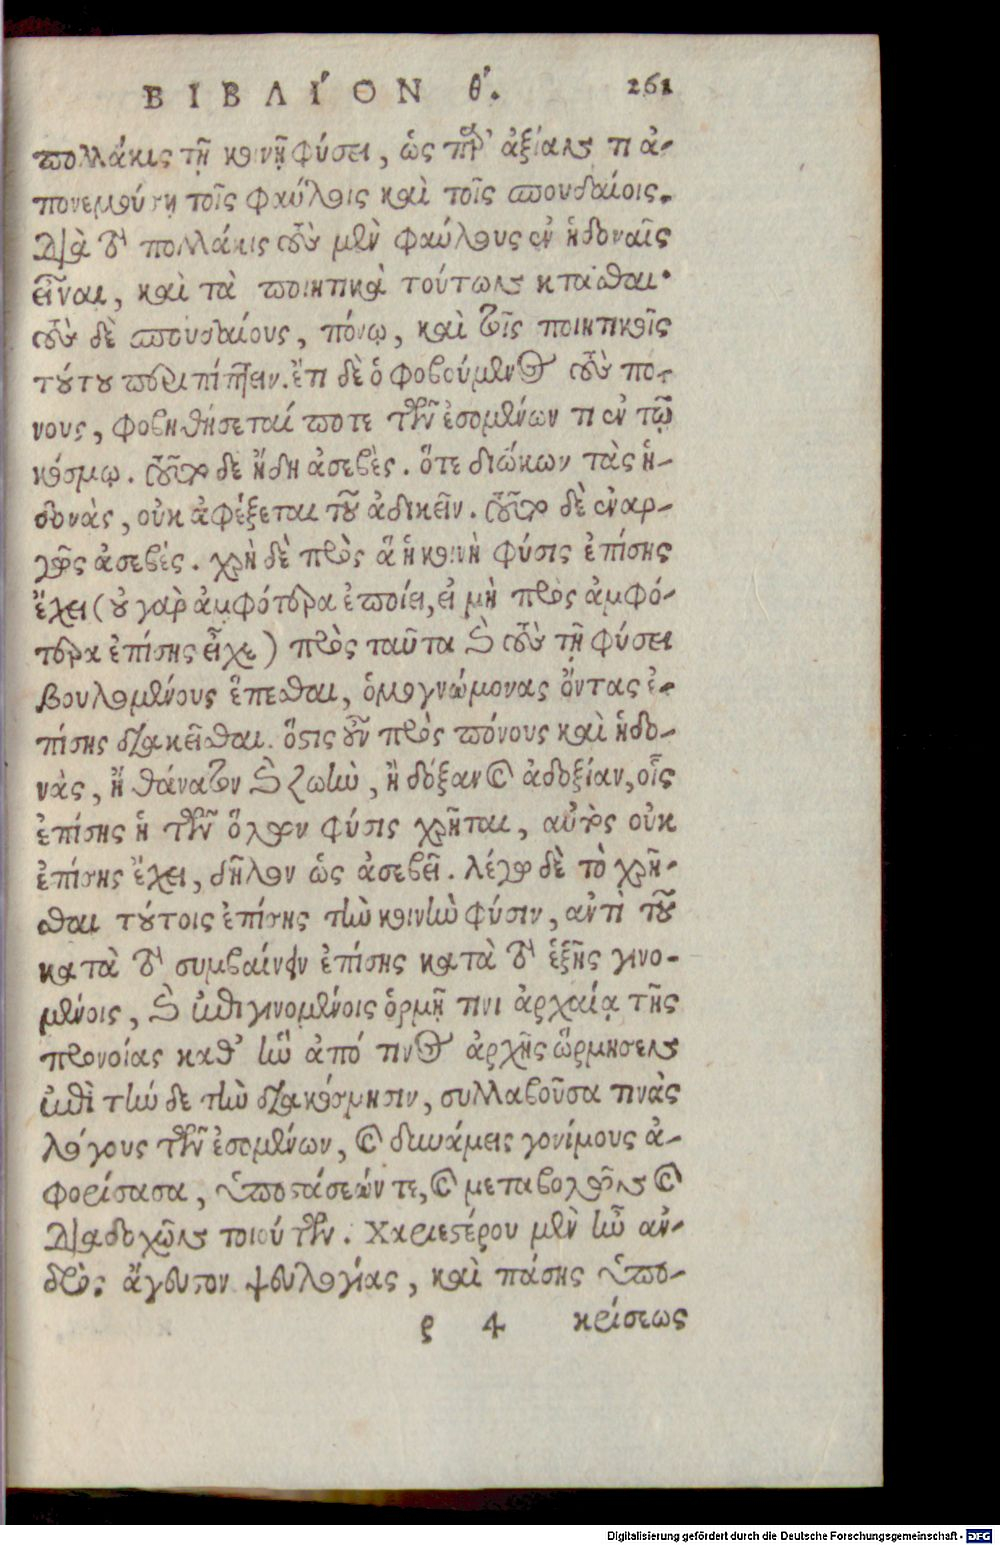 ΒΙΒΛΊΟΝ θʹ. 261
πολλάκις τῇ κοινῇ φύσει, ὡς παρ' ἀξίαν τι ἀ-
πονεμούσῃ τοῖς φαύλοις καὶ τοῖς σπουδαίοις.
Διὰ τὸ πολλάκις τοὺς μὲν φαύλους ἐν ἡδοναῖς
εἶναι, καὶ τὰ ποιητικὰ τούτων κτᾶσθαι·
τοὺς δὲ σπουδαίους, πόνῳ, καὶ τοῖς ποιητικοῖς
τούτου περιπίπτειν. ἔτι δὲ ὁ φοβούμενος τοὺς πό-
νους, φοβηθήσεταί ποτε τῶν ἐσομένων τι ἐν τῷ
κόσμῳ. τοῦτο δε ἤδη ἀσεβὲς. ὅτε διώκων τὰς ἡ-
δονὰς, οὐκ ἀφέξεται τοῦ ἀδικεῖν. τοῦτο δὲ ἐναρ-
γῶς ἀσεβές. χρὴ δὲ πρὸς ἃ ἡ κοινὴ φύσις ἐπίσης
ἔχει (οὐ γὰρ ἀμφότερα ἐποίει, εἰ μὴ πρὸς ἀμφό-
τερα ἐπίσης εἶχε) πρὸς ταῦτα καὶ τοὺς τῇ φύσει
βουλομένους ἕπεσθαι, ὁμογνώμονας ὄντας ἐ-
πίσης διακεῖσθαι. ὅστις οὖν πρὸς πόνους καὶ ἡδο-
νὰς, ἢ θάνατον καὶ ζωὴν, ἢ δόξαν καὶ ἀδοξίαν, οἷς
ἐπίσης ἡ τῶν ὅλων φύσις χρῆται, αὐτὸς οὐκ
ἐπίσης ἔχει, δῆλον ὡς ἀσεβεῖ. λέγω δὲ τὸ χρῆ-
σθαι τούτοις ἐπίσης τὴν κοινὴν φύσιν, ἀντὶ τοῦ
κατὰ τὸ συμβαίνειν ἐπίσης κατὰ τὸ ἑξῆς γινο-
μένοις, καὶ ἐπιγινομένοις ὁρμῇ τινι ἀρχαίᾳ τῆς
προνοίας καθ' ἣν ἀπό τινος ἀρχῆς ὥρμησεν
ἐπὶ τήν δε τὴν διακόσμησιν, συλλαβοῦσα τινὰς
λόγους τῶν ἐσομένων, καὶ δυνάμεις γονίμους ἀ-
φορίσασα, ὑποστάσεών τε, καὶ μεταβολῶν καὶ
Διαδοχῶν τοιούτων. Χαριεστέρου μὲν ἦν ἀν-
δρὸς ἄγευστον ψευλογίας, καὶ πάσης ὑπο-
ς 4 κρίσεως
Digitalisierung gefördert durch die Deutsche Forschungsgemeinschaft - DFG